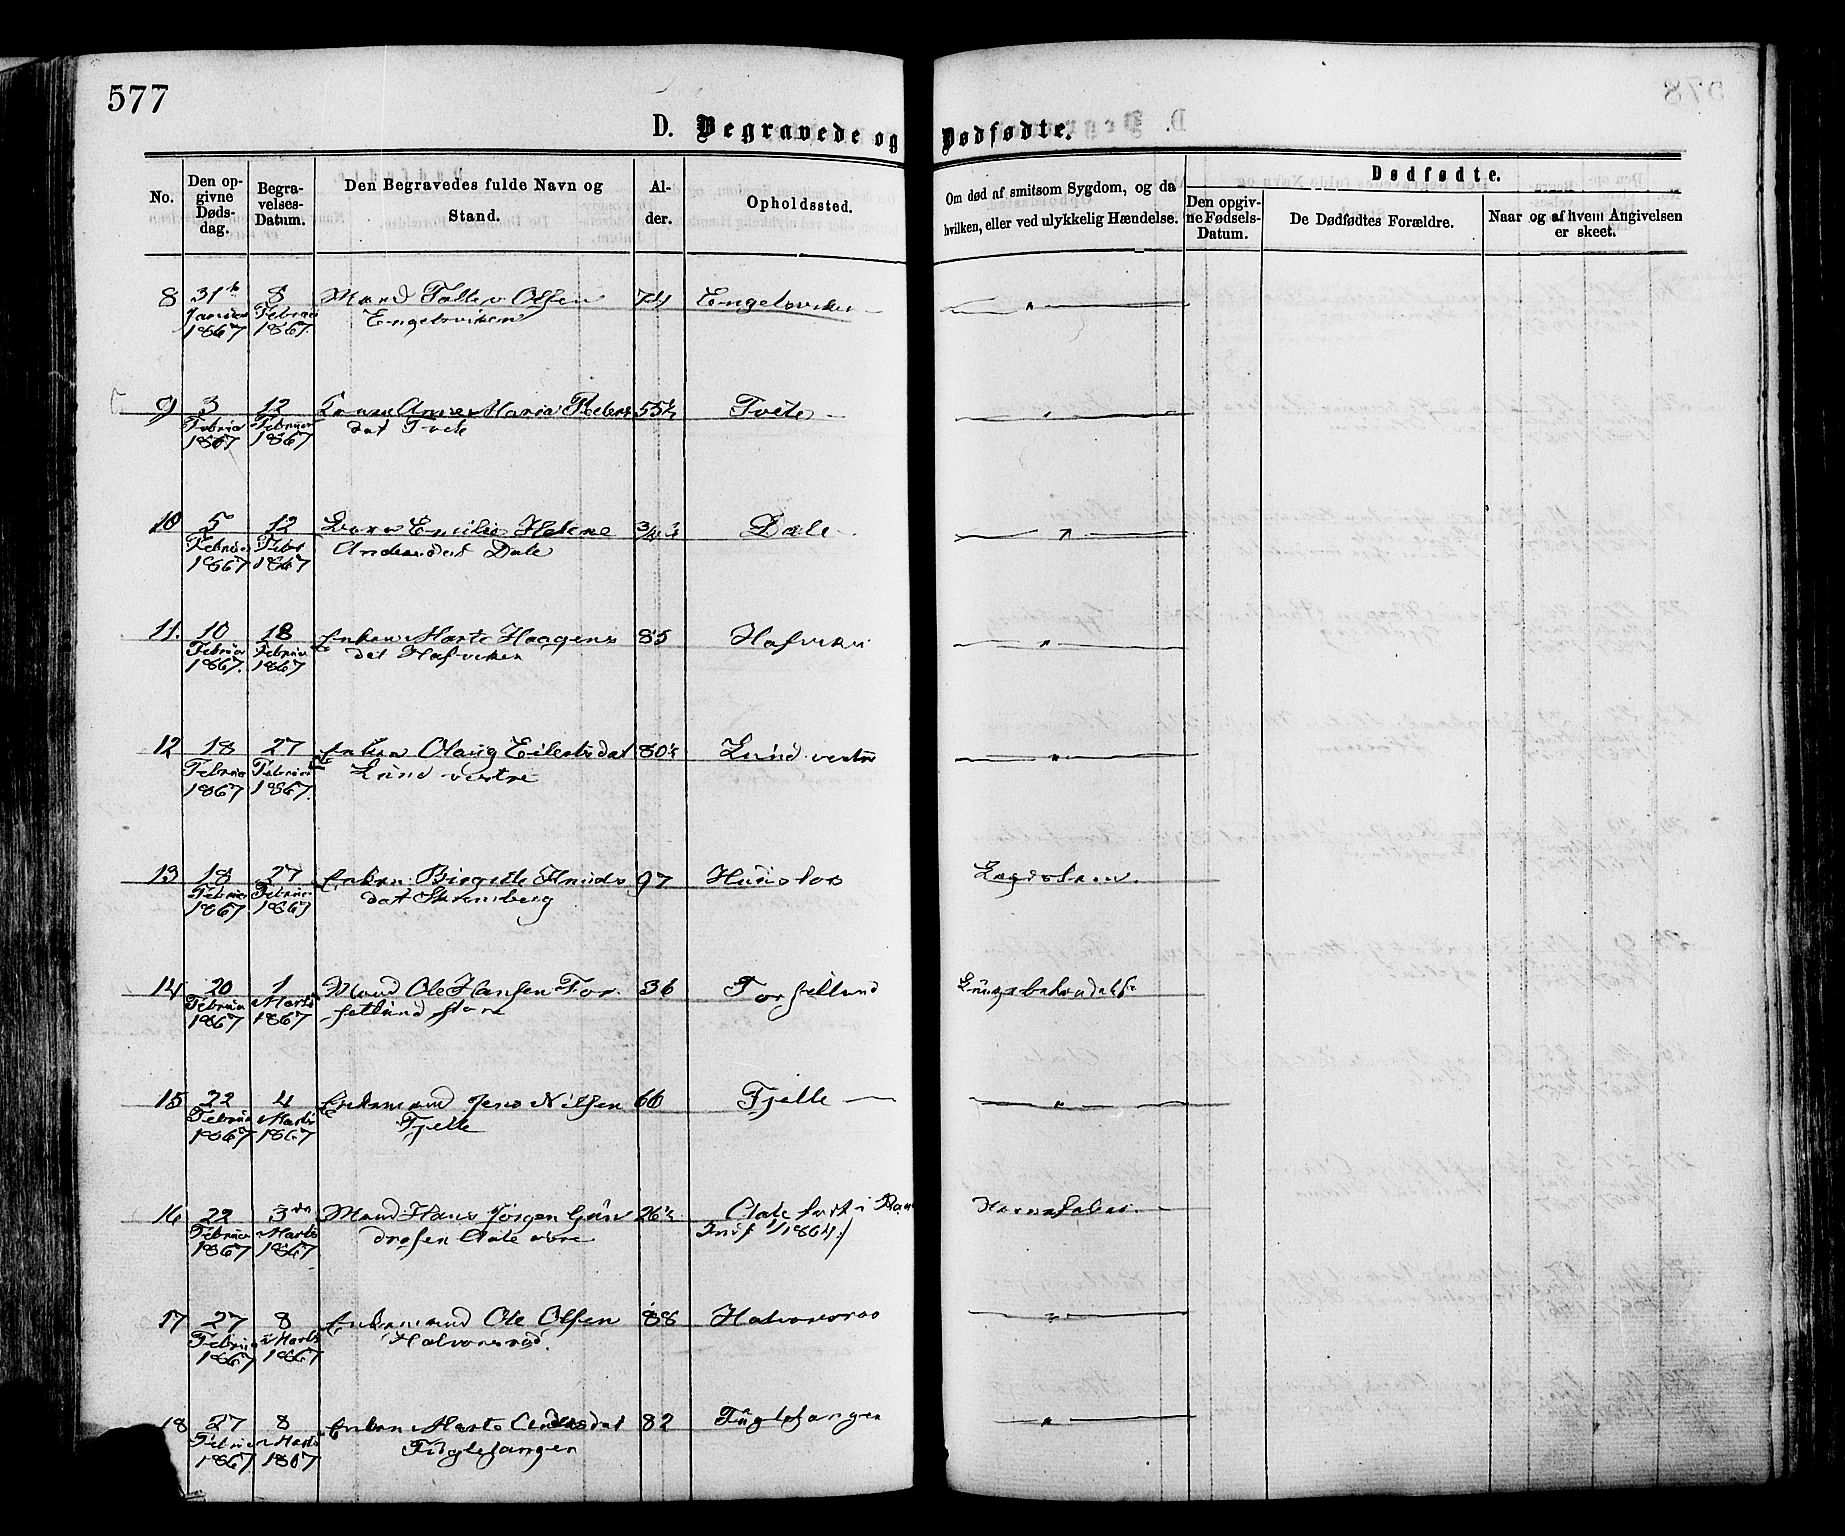 577
D. Begravede og Dødfødte.
No. Den opgivne Dødsdag. Begravelses-Datum. Den Begravedes fulde Navn og Stand. Alder. Opholdssted. Om død af smitsom Sygdom, og da hvilken, eller ved ulykkelig Hændelse.
Dødfødte.
Den opgivne Fødsels-Datum. De Dødfødtes Forældre. Naar og af hvem Angivelsen er skeet.
8 31te 8 Mand Tollev Olsen 74 Engelsviken "
Januar Februar Engelsviken
1867 1867.
9 3 12 Kone Anne Maria Peders 55½ Tvete "
Februar Februar dat Tvete
1867 1867
10 5 12 Barn Emilie Helene 3/4 Dale "
Februar Febr Andersdat Dale
1867 1867
11. 10 18 Enken Marte Haagens 85 Hafviken "
Februar Februar dat Hafviken
1867. 1867
12 18 27 Enken Olaug Eilertsdat 80½ Lund vestre "
Februar Februar Lund vestre
1867 1867.
13 18 27 Enken Birgitte Knuds 97 Hunslos Lægdslem
Februar Februar dat
1867. 1867
14 20 1 Mand Ole Hansen Tor 36 Torfetlund
Februar Marts fetlund store
1867 1867
15 22 4 Enkemand Jens Nilsen 66 Fjelle "
Februar Marts Fjelle
1867 1867
16 22 3die Mand Hans Jørgen Gun 26½
Februar Marts dersen
1867 1867
17 27 8 Enkemand Ole Olsen 88 Halvorsrød "
Februar Marts Halvorsrød.
1867 1867
18 27 8 Enken Marte Andersdat 82 Fuglefangen "
Februar Marts Fuglefangen
1867 1867